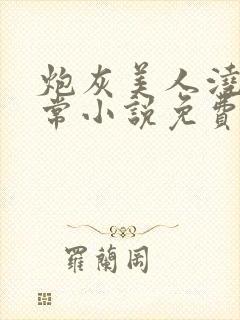 炮灰美人澆
常小說免費
羅蘭岡